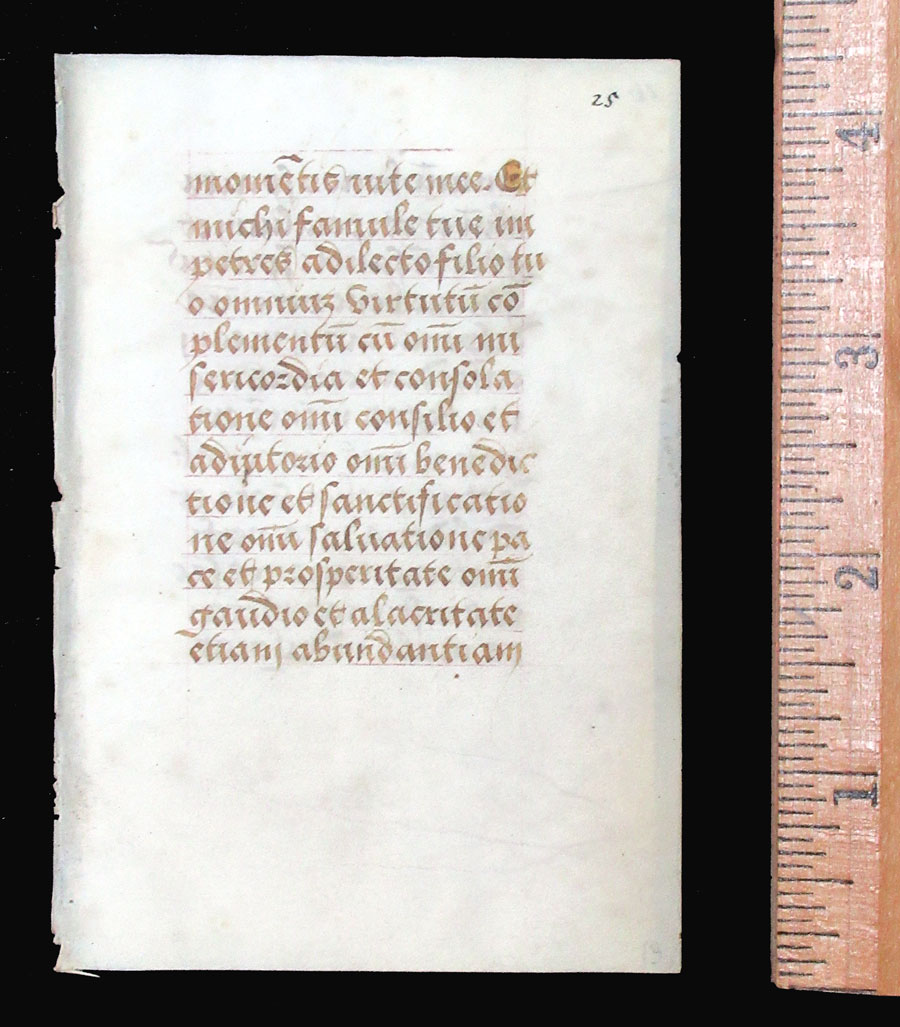 25
momētis uite mee. Et
michi famule tue im
petres a dilecto filio tu
o omniuz virtutū cō
plementū cū omī mi
sericordia et consola
tione omī consilio et
adiutorio omī benedic
tione et sanctificatio
ne omī saluatione pa
ce et prosperitate omī
gaudio et alacritate
etiam abundantiam
4
3
2
1